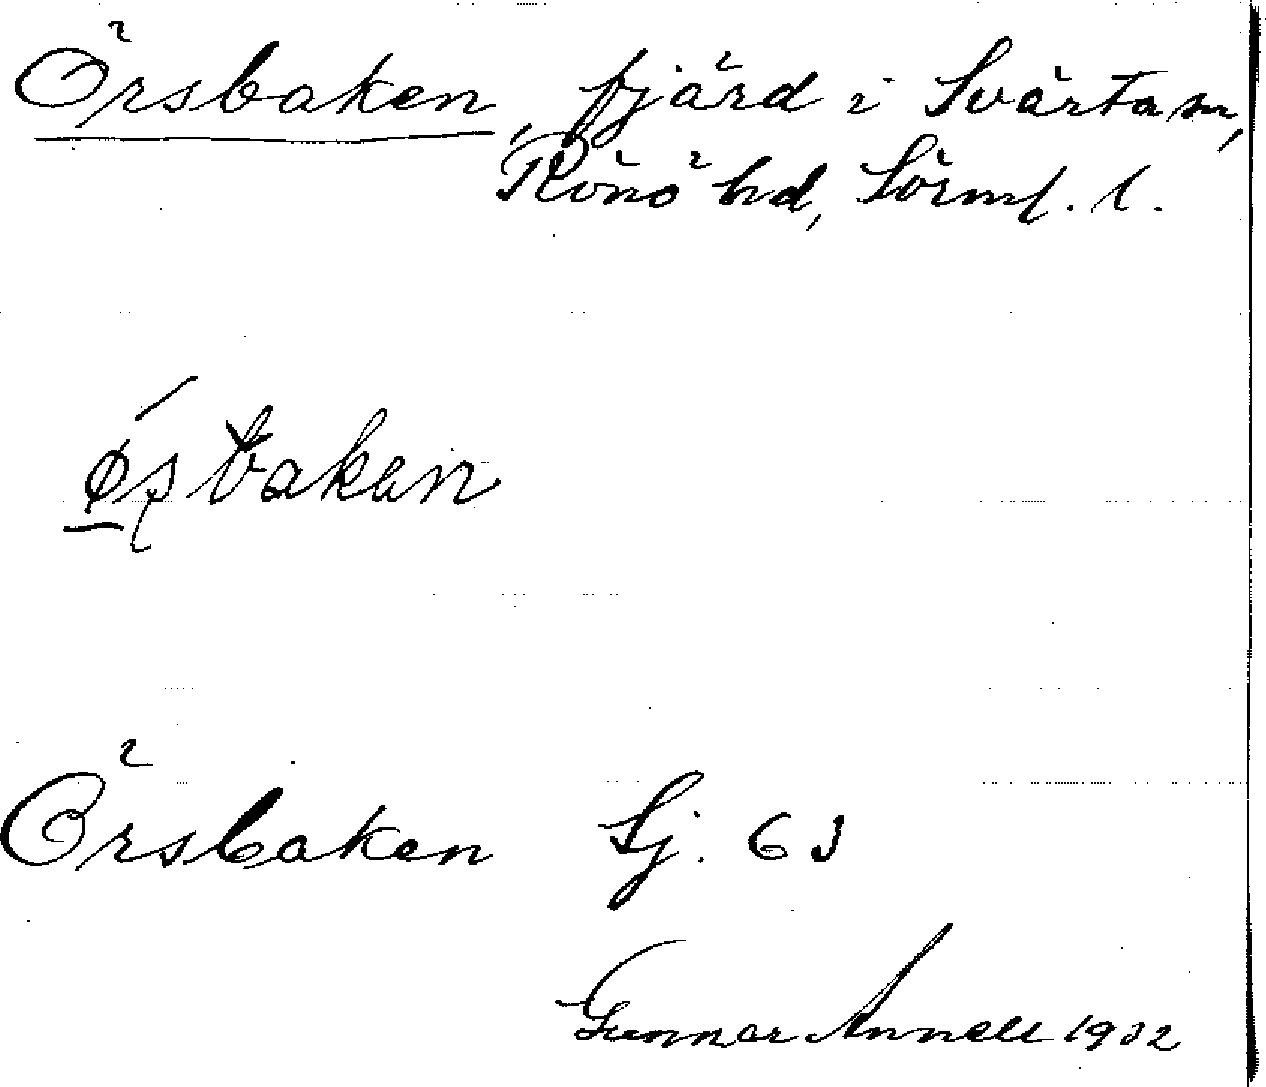 Örsbaken, fjärd i Svärta sn,
Rönö hd, Sörml. l.
ǿʂbakan
Örsbaken Sj. 63
Gunnar Annell 1932